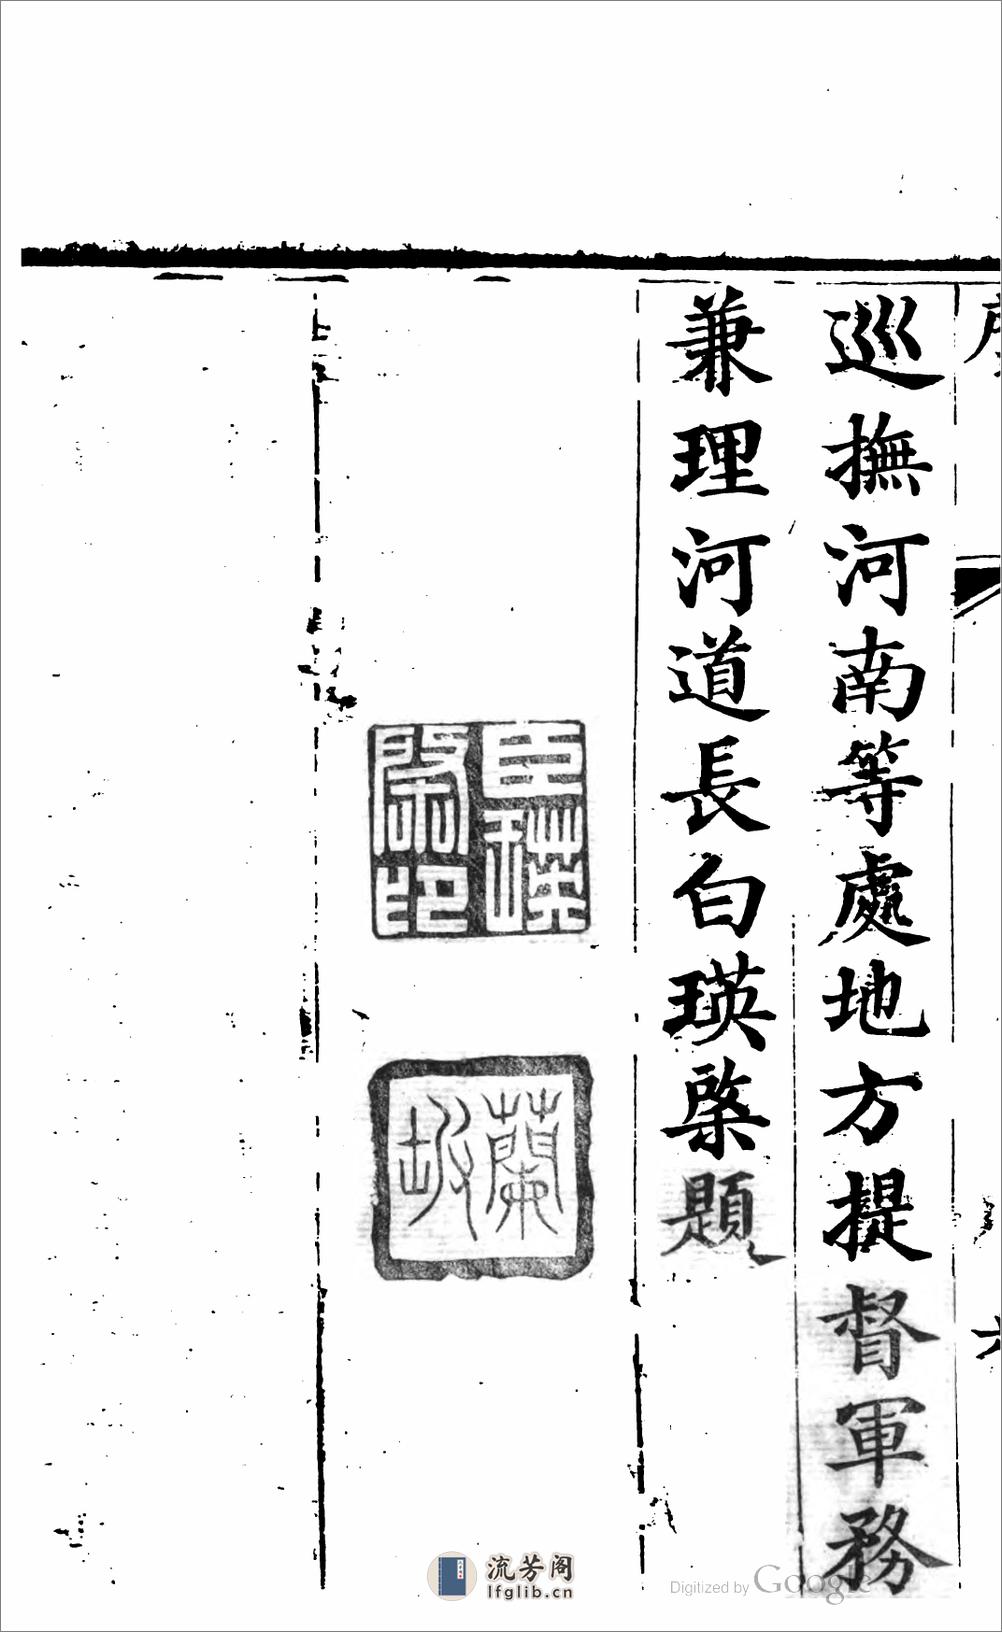 巡撫河南等處地方提督軍務
兼理河道長白瑛棨題
臣瑛
棨印
蘭坡
六
流芳阁
lfglib.cn
Digitized by Google